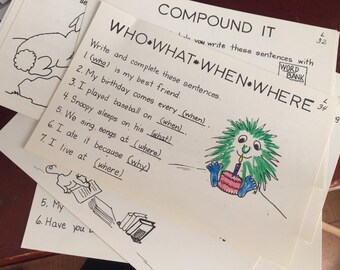 COMPOUND IT
you write these sentences with
L
32
WORD
BANK
WHO•WHAT•WHEN•WHERE
L
34
Write and complete these sentences.
1. (who) is my best friend.
2. My birthday comes every (when).
3. I played baseball on (when).
4. Snoopy sleeps on his (what).
5. We sing songs at (where).
6. I ate it because (why).
7. I live at (where)
5. My
6. Have you